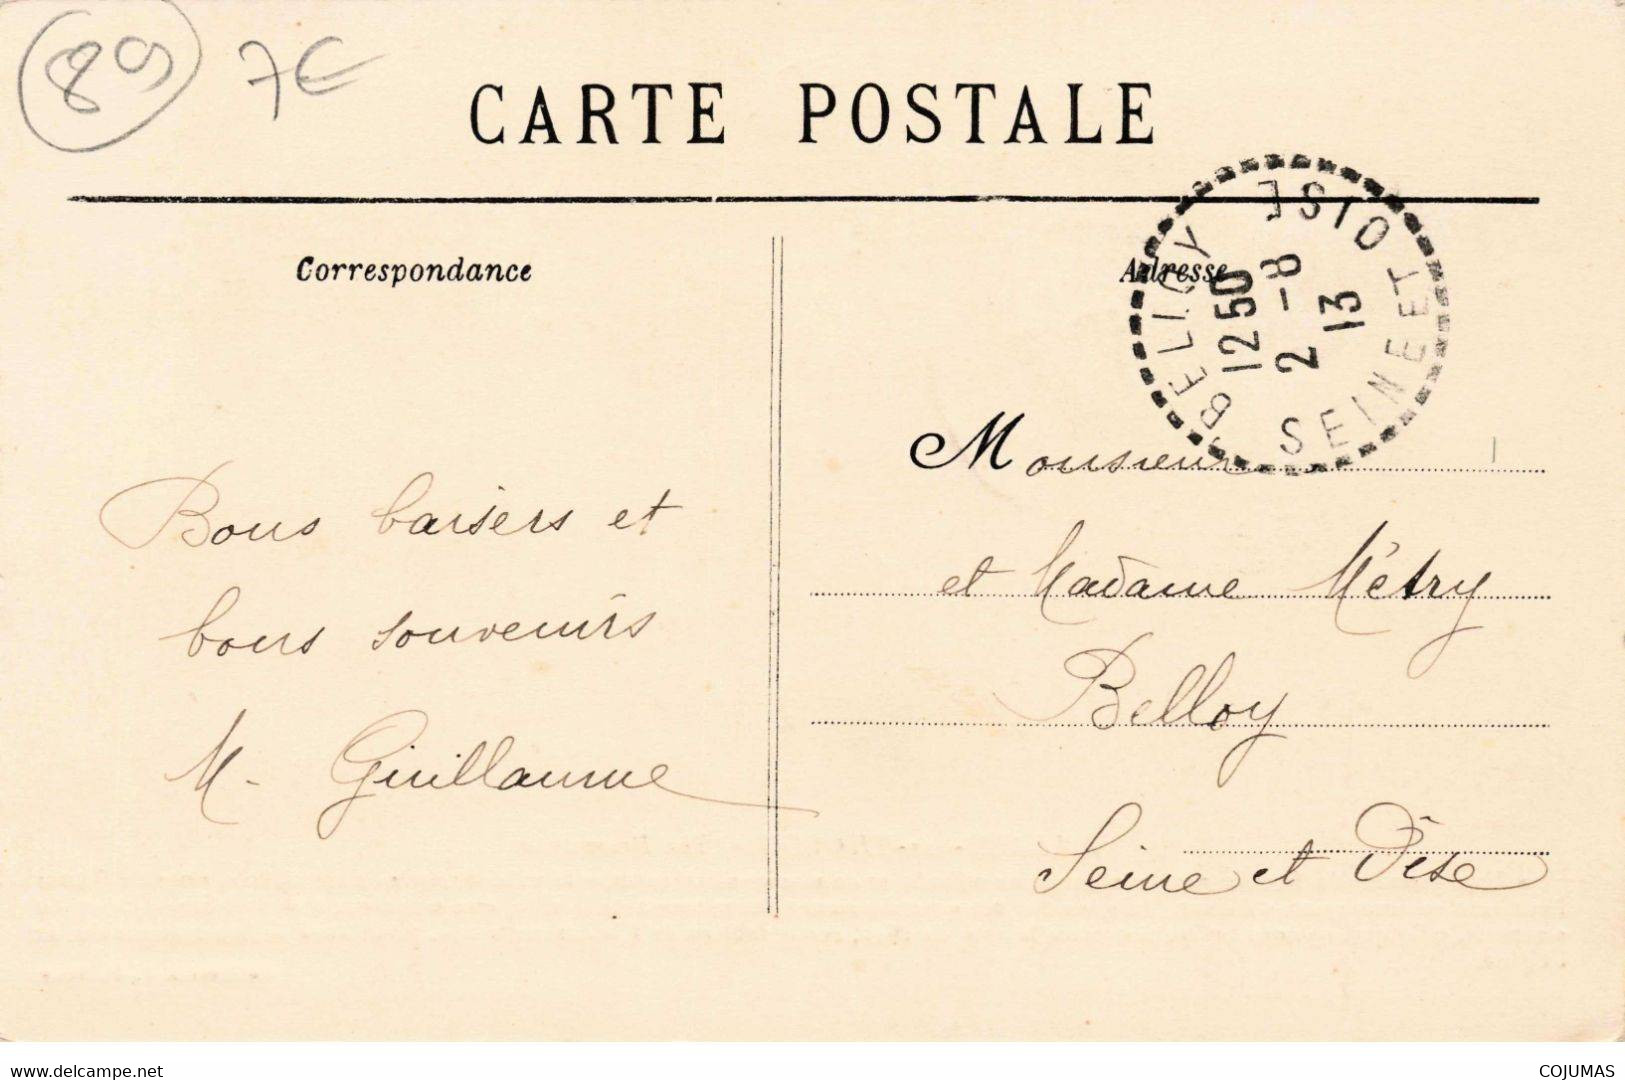 89 7€
CARTE POSTALE
Correspondance
Adresse
BELLOY SEINE ET OISE
12 50
2 - 8
13
Bons baisers et
bons souvenirs
M. Guillaume
Monsieur
et Madame Métry
Belloy
Seine et Oise
www.delcampe.net
COJUMAS